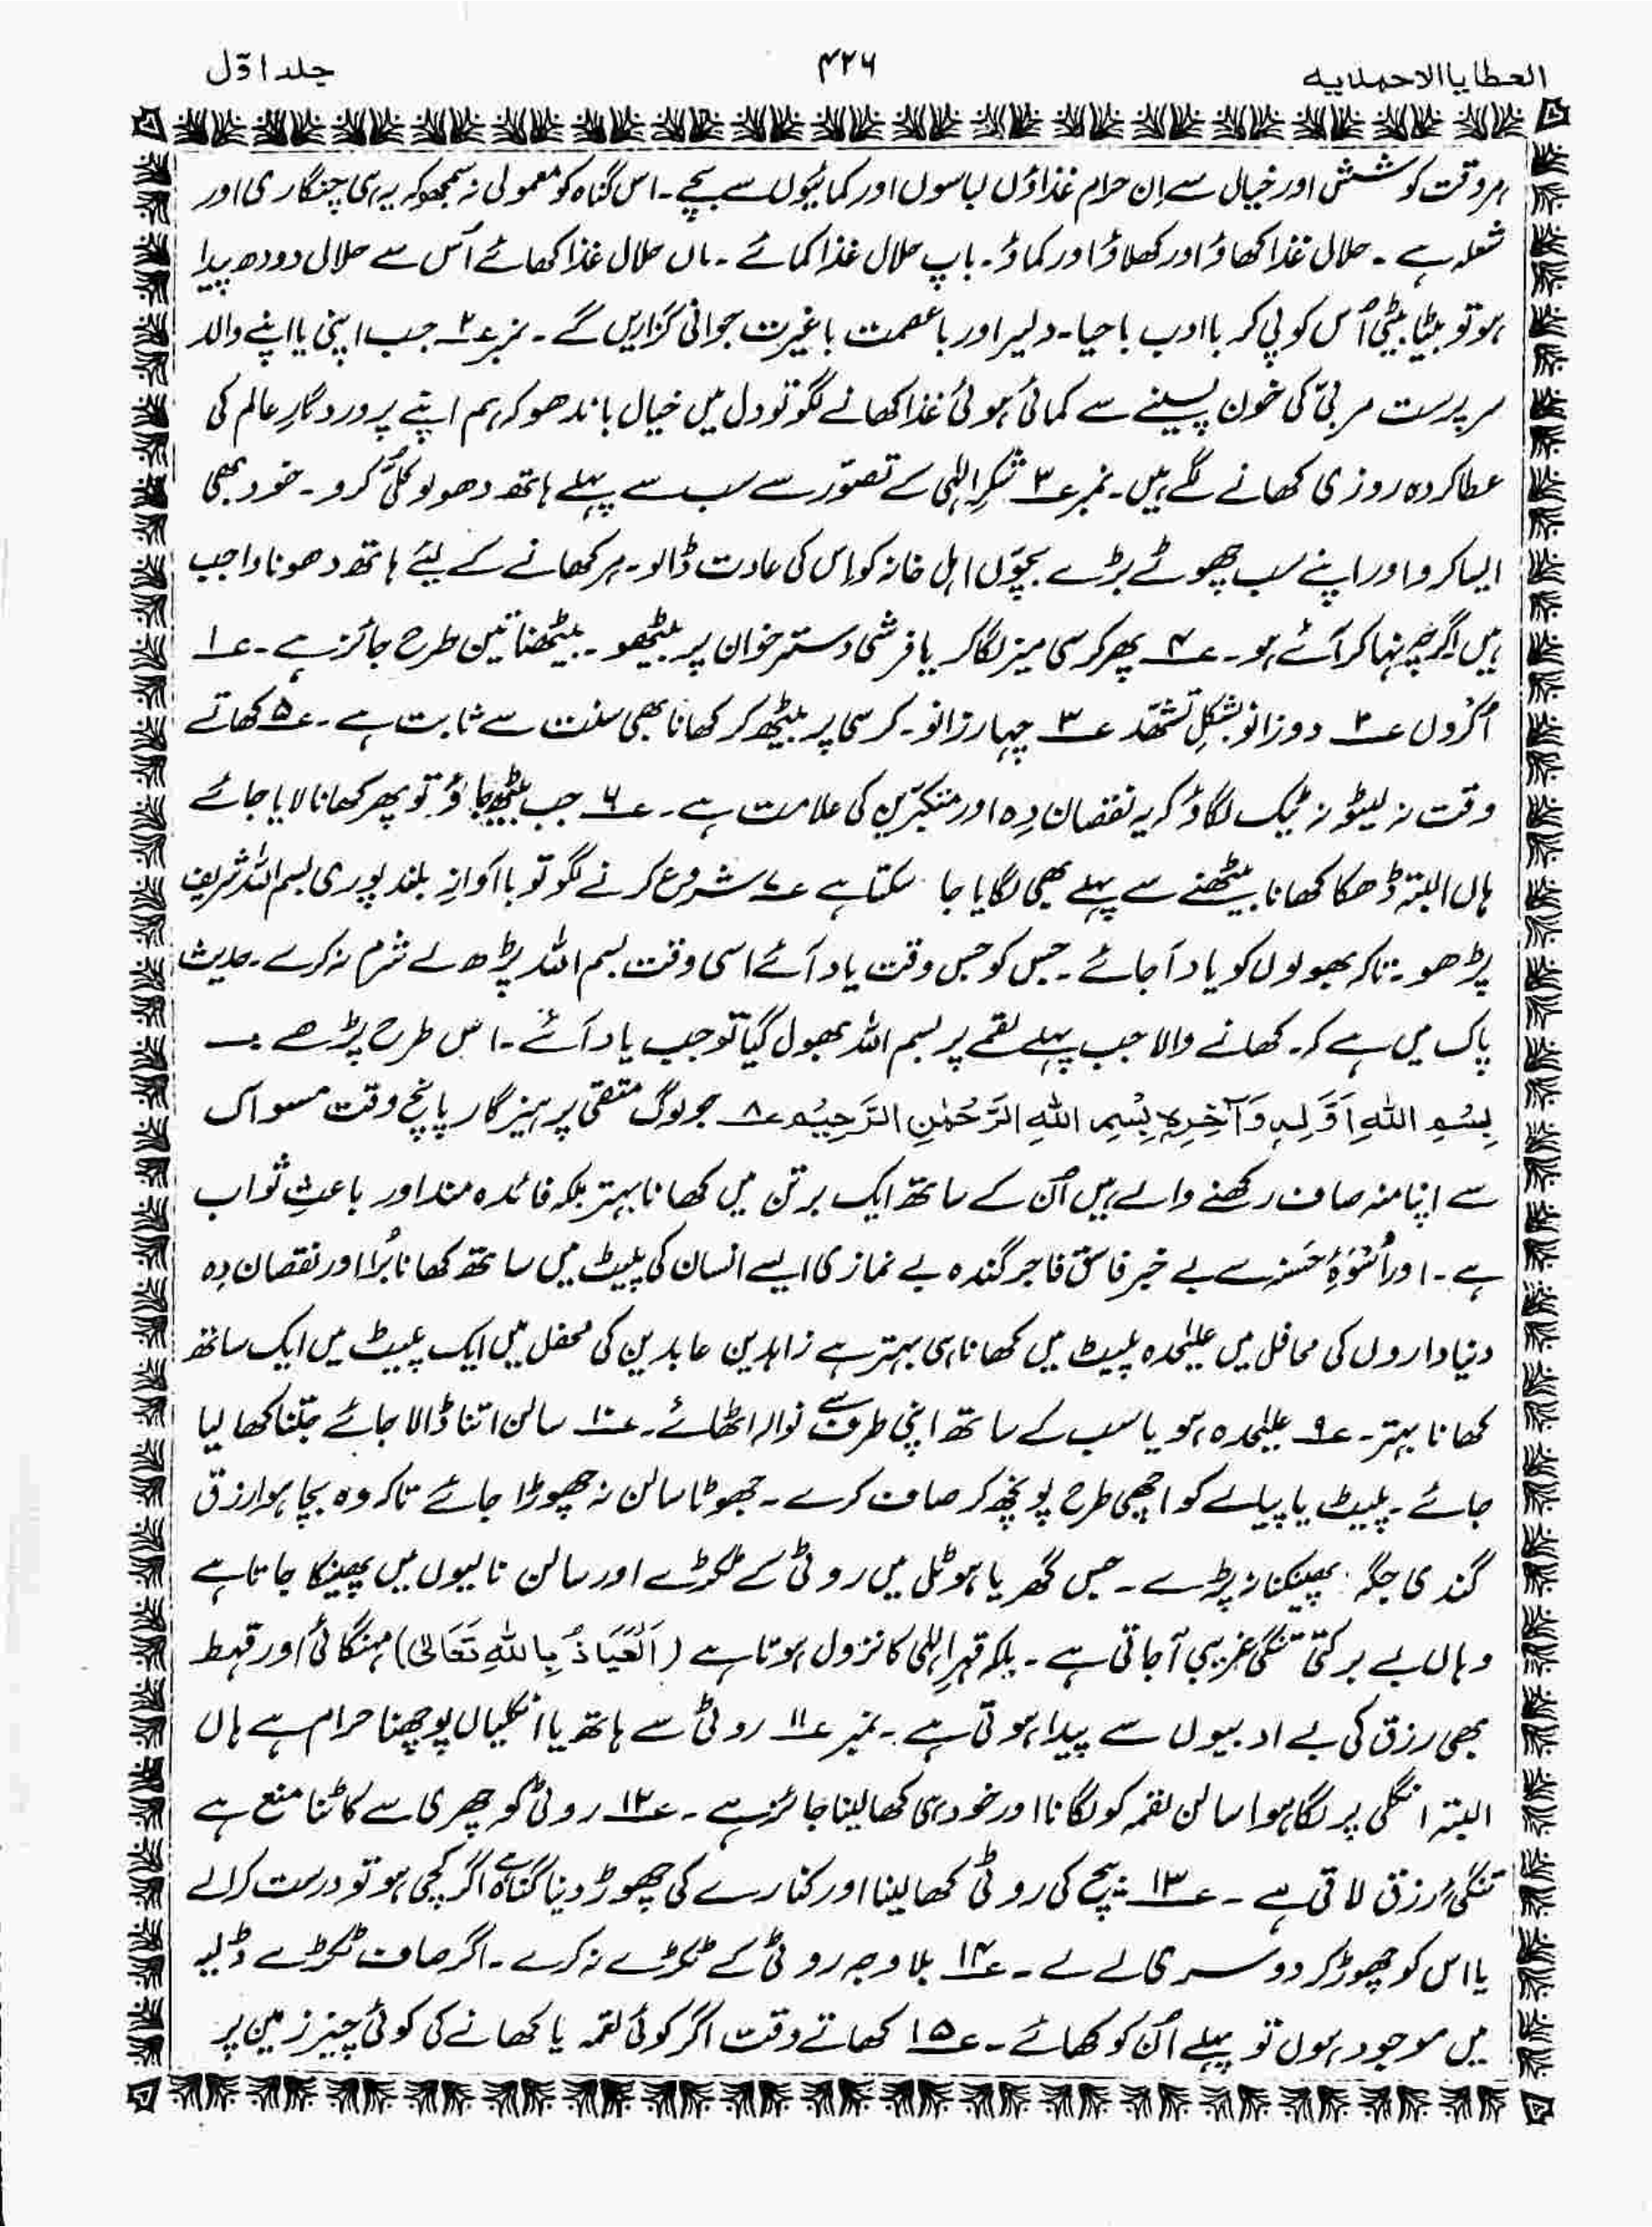 العطایا الاحمدیہ ۴۲۶ جلد اوّل
ہر وقت کوشش اور خیال سے اِن حرام غذاؤں لباسوں اور کمائیوں سے بچے۔ اس گناہ کو معمولی نہ سمجھو کہ یہ ہی چنگاری اور
شعلہ ہے۔ حلال غذا کھاؤ اور کھلاؤ اور کماؤ۔ باپ حلال غذا کمائے۔ ماں حلال غذا کھائے اُس سے حلال دودھ پیدا
ہو تو بیٹا بیٹی اُس کو پی کر باادب باحیا۔ دلیر اور باعصمت باغیرت جوانی گزاریں گے۔ نمبر ؏۲ جب اپنی یا اپنے والد
سرپرست مربیّ کی خون پسینے سے کمائی ہوئی غذا کھانے لگو تو دل میں خیال باندھو کہ ہم اپنے پروردگارِ عالم کی
عطا کردہ روزی کھانے لگے ہیں۔ نمبر ؏۳ شکرِ الٰہی کے تصوّر سے سب سے پہلے ہاتھ دھو لو کُلّی کرو۔ خود بھی
ایسا کرو اور اپنے سب چھوٹے بڑے بچوّں اہل خانہ کو اِس کی عادت ڈالو۔ ہر کھانے کے لیئے ہاتھ دھونا واجب
ہیں اگرچہ نہا کر آئے ہو۔ ؏۴ پھر کرسی میز لگا کر یا فرشی دسترخوان پر بیٹھو۔ بیٹھنا تین طرح جائز ہے۔ ؏۱
اُکڑوں ؏۲ دوزانو بشکلِ تشہّد ؏۳ چہار زانو۔ کرسی پر بیٹھ کر کھانا بھی سنت سے ثابت ہے۔ ؏۵ کھاتے
وقت نہ لیٹو نہ ٹیک لگاؤ کہ یہ نقصان دِہ اور متکبّرین کی علامت ہے۔ ؏۶ جب بیٹھ جاؤ تو پھر کھانا لایا جائے
ہاں البتہ ڈھکا کھانا بیٹھنے سے پہلے بھی لگایا جا سکتا ہے ؏۷ شروع کرنے لگو تو باآوازِ بلند پوری بسم اللہ شریف
پڑھو۔ تاکہ بھولوں کو یاد آجائے۔ جس کو جس وقت یاد آئے اسی وقت بسم اللہ پڑھ لے شرم نہ کرے۔ حدیث
پاک میں ہے کہ۔ کھانے والا جب پہلے لقمے پر بسم اللہ بھول گیا تو جب یاد آئے۔ اس طرح پڑھے :۔
بِسْمِ اللہِ اَوَّلِہٖ وَآخِرِہٖ بِسْمِ اللہِ الرَّحْمٰنِ الرَّحِیْمِ ؏۸ جو لوگ متقی پرہیزگار پانچ وقت مسواک
سے اپنا منہ صاف رکھنے والے ہیں اُن کے ساتھ ایک برتن میں کھانا بہتر بلکہ فائدہ مند اور باعثِ ثواب
ہے۔ اور اُسْوَۂِ حَسَنہ سے بے خبر فاسق فاجر گندہ بے نمازی ایسے انسان کی پلیٹ میں ساتھ کھانا بُرا اور نقصان دِہ
دنیاداروں کی محافل میں علیٰحدہ پلیٹ میں کھانا ہی بہتر ہے زاہدین عابدین کی محفل میں ایک پلیٹ میں ایک ساتھ
کھانا بہتر۔ ؏۹ علیٰحدہ ہو یا سب کے ساتھ اپنی طرف سے نوالہ اٹھائے۔ ؏۱۰ سالن اتنا ڈالا جائے جتنا کھا لیا
جائے۔ پلیٹ یا پیالے کو اچھی طرح پونچھ کر صاف کرے۔ جھوٹا سالن نہ چھوڑا جائے تاکہ وہ بچا ہوا رزق
گندی جگہ پھینکنا نہ پڑے۔ جس گھر یا ہوٹل میں روٹی کے ٹکڑے اور سالن نالیوں میں پھینکا جاتا ہے
وہاں بے برکتی تنگی غریبی آجاتی ہے۔ بلکہ قہرِ الٰہی کا نزول ہوتا ہے (اَلْعَیَاذُ بِاللہِ تَعَالیٰ) مہنگائی اور قہط
بھی رزق کی بے ادبیوں سے پیدا ہوتی ہے۔ نمبر ؏۱۱ روٹی سے ہاتھ یا انگلیاں پوچھنا حرام ہے ہاں
البتہ انگلی پر لگا ہوا سالن لقمہ کو لگانا اور خود ہی کھا لینا جائز ہے۔ ؏۱۲ روٹی کو چھری سے کاٹنا منع ہے
تنگیٔ رزق لاتی ہے۔ ؏۱۳ بیچ کی روٹی کھا لینا اور کنارے کی چھوڑ دینا گناہ ہے اگر کچی ہو تو درست کرالے
یا اس کو چھوڑ کر دوسری لے لے۔ ؏۱۴ بلاوجہ روٹی کے ٹکڑے نہ کرے۔ اگر صاف ٹکڑے ڈلیہ
میں موجود ہوں تو پہلے اُن کو کھائے۔ ؏۱۵ کھاتے وقت اگر کوئی لقمہ یا کھانے کی کوئی چیز زمین پر